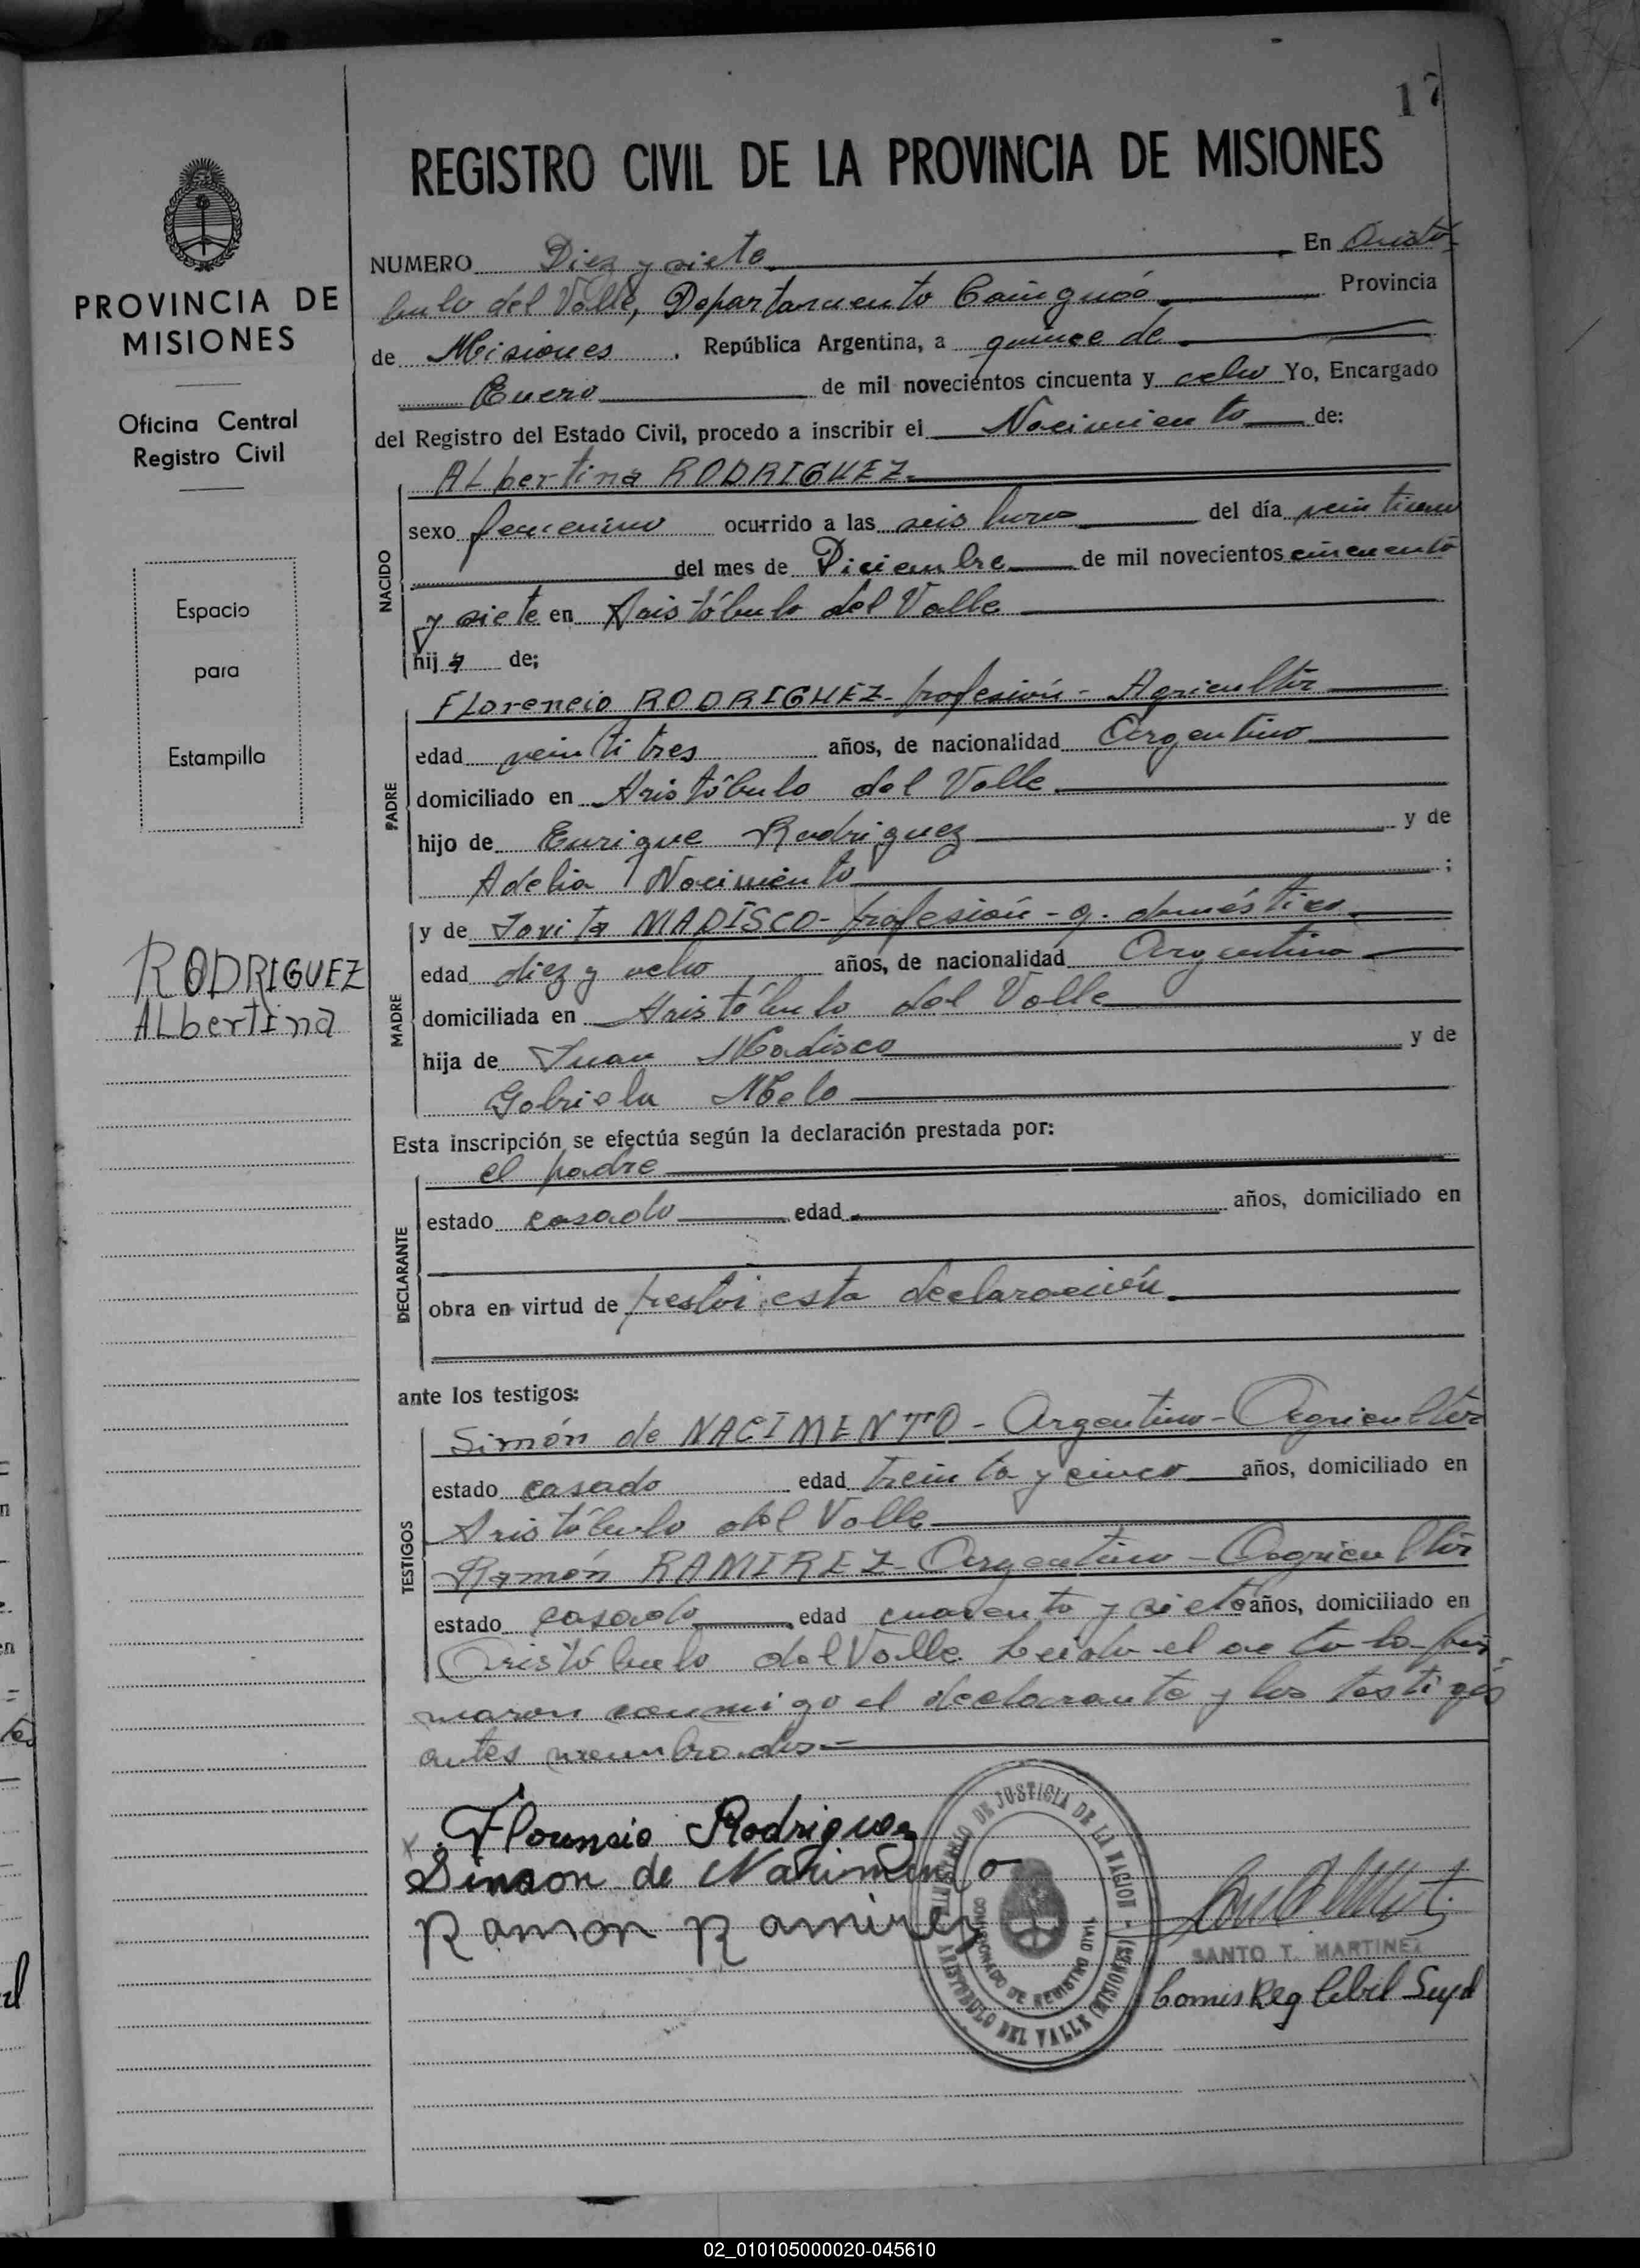 17
REGISTRO CIVIL DE LA PROVINCIA DE MISIONES
PROVINCIA DE
MISIONES
Oficina Central
Registro Civil
Espacio
para
Estampilla
RODRIGUEZ
ALbertina
NUMERO Diez y siete En Aristó
bulo del Valle, Departamento Cainguás Provincia
de Misiones, República Argentina, a quince de
Enero de mil novecientos cincuenta y ocho Yo, Encargado
del Registro del Estado Civil, procedo a inscribir el Nacimiento de:
NACIDO
ALbertina RODRIGUEZ
sexo femenino ocurrido a las seis horas del día veintiuno
del mes de Diciembre de mil novecientos cincuenta
y siete en Aristóbulo del Valle
hija de;
PADRE
FLorencio RODRIGUEZ- profesión- Agricultor
edad veintitres años, de nacionalidad Argentino
domiciliado en Aristóbulo del Valle
hijo de Enrique Rodriguez y de
Adelia Nacimiento;
MADRE
y de Jovita MADISCO- profesión- q. doméstico
edad diez y ocho años, de nacionalidad Argentina
domiciliada en Aristóbulo del Valle
hija de Juan Madisco y de
Gabriela Melo
Esta inscripción se efectúa según la declaración prestada por:
DECLARANTE
el padre
estado casado edad años, domiciliado en
obra en virtud de prestar esta declaración
ante los testigos:
TESTIGOS
Simón de NACIMENTO - Argentino- Agricultor
estado casado edad treinta y cinco años, domiciliado en
Aristóbulo del Valle
Ramón RAMIREZ- Argentino- Agricultor
estado casado edad cuarenta y siete años, domiciliado en
Aristóbulo del Valle. Leida el acta la fir-
maron conmigo el declarante y los testigos
antes nombrados-
Florensio Rodriguez
Simon de Nacimento
Ramon Ramirez
MINISTERIO DE JUSTICIA DE LA NACION
ARISTOBULO DEL VALLE (MISIONES)
COMISIONADO DE REGISTRO CIVIL
SANTO T. MARTINEZ
Comis Reg Civil Supl
02_010105000020-045610